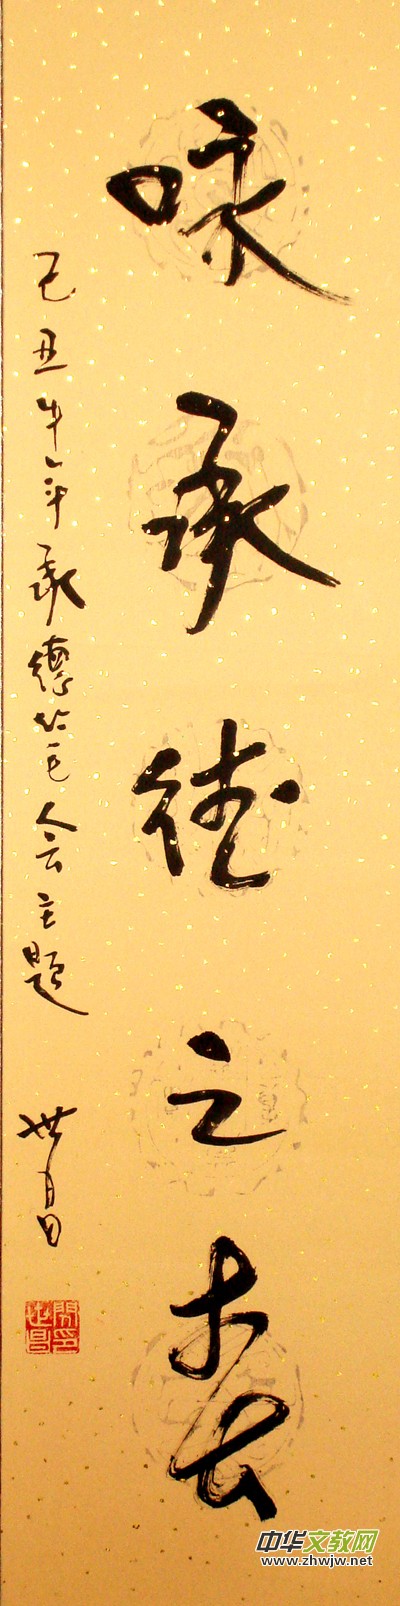 咏承德之
己丑牛年承德笔会主题
世昌
中华文教网
www.zhwjw.net